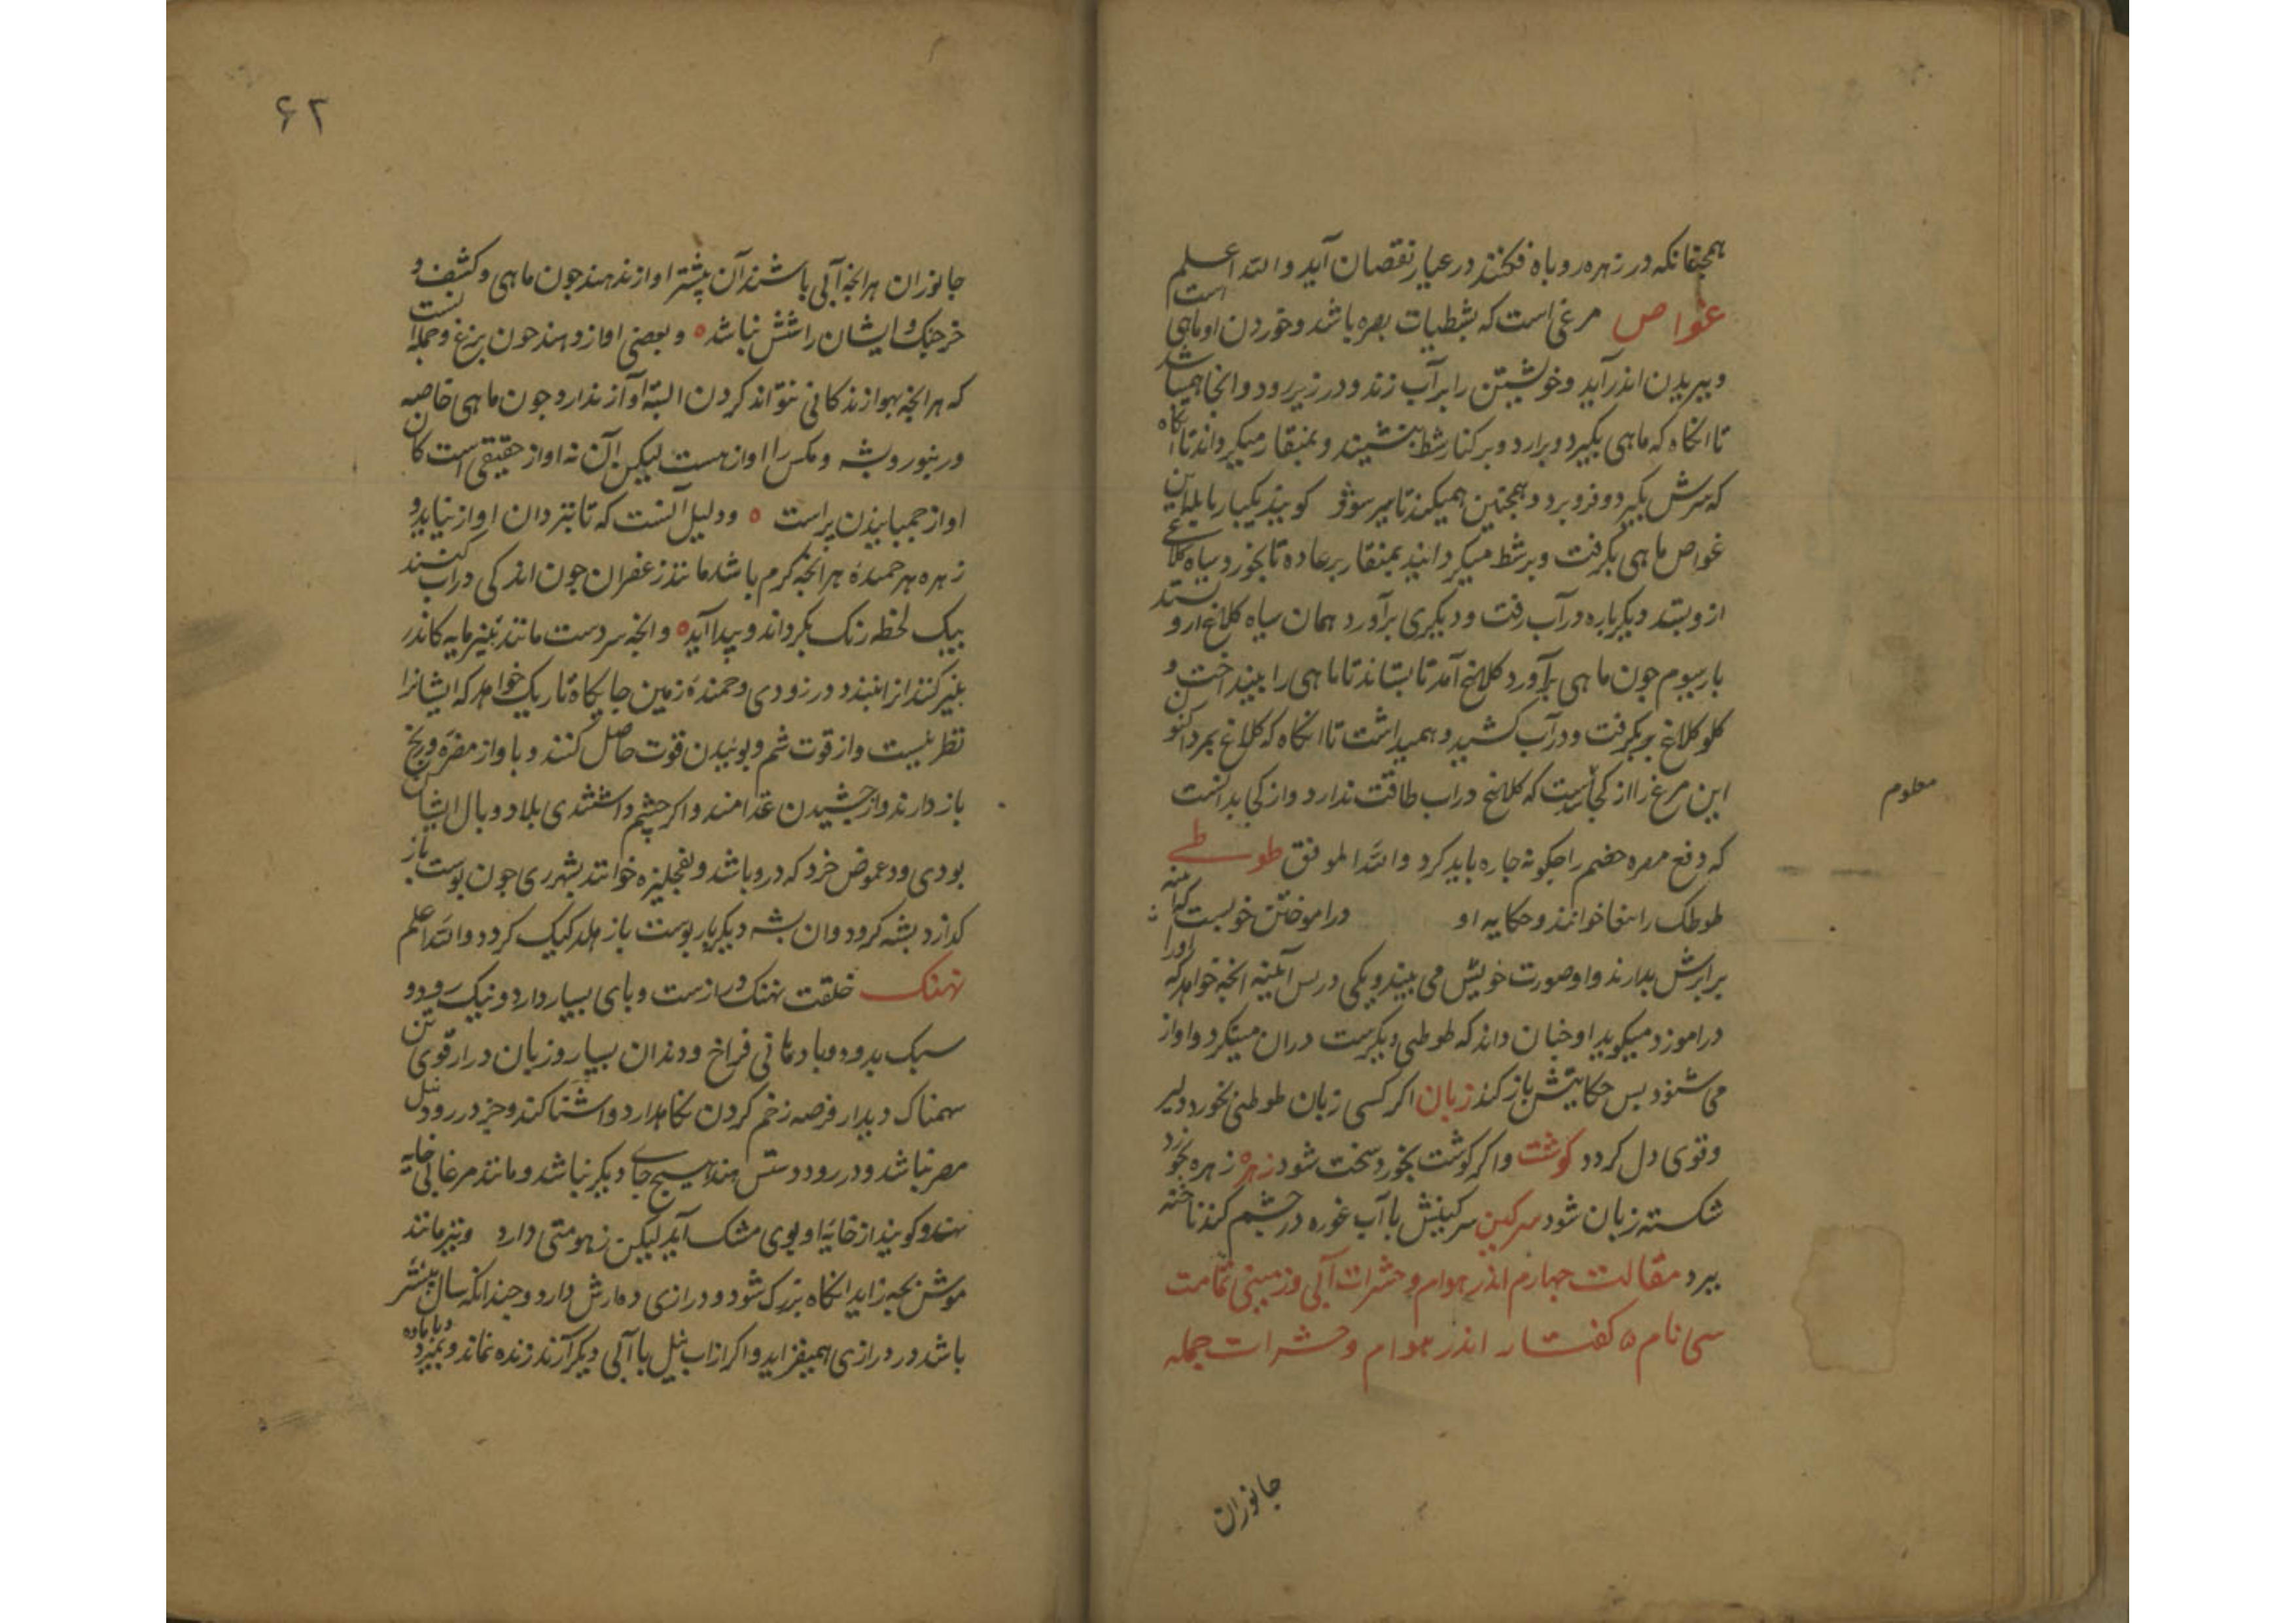 همچنانکه در زهره روباه فکنند در عیار نقصان آید والله اعلم
غواص مرغی است که بشطیات بصره باشد و خوردن او ماهی است
و ببریدن اندر آید و خویشتن را بر آب زند و در زیر رود و انجا همیباشد
تا انکاه که ماهی بکیرد و برارد و بر کنار شط بنشیند و بمنقار میکرداند تا انکاه
که سرش بکیرد و فرو برد و همچنین همیکند تا سیر شود کویند یکبار
غواص ماهی بکرفت و بر شط میکردانید بمنقار بر عاده تا بخورد سیاه کلاغی
ازو بستد دیکر باره در آب رفت و دیکری برآورد همان سیاه کلاغ ازو بستد
بار سیوم جون ماهی برآورد کلاغ آمد تا بستاند تا ماهی را بینداخت و
کلو کلاغ بکرفت و در آب کشید و همیداشت تا انکاه که کلاغ بمرد اکنون
این مرغ را از کجاست که کلاغ در اب طاقت ندارد و از کجا بدانست
معلوم
که دفع مضره خصم را جکونه جاره باید کرد والله الموفق طوطی
طوطک را ببغا خوانند و حکایه او در اموختن خوبست که آینه
برابرش بدارند و او صورت خویش می بیند و یکی در بس آیینه انجه خواهد که او را
دراموزد میکوید او جنان داند که طوطی دیکرست در ان مینکرد و اواز
می شنود بس حکایتش باز کند زبان اکر کسی زبان طوطی بخورد دلیر
و قوی دل کردد کوشت و اکر کوشت بخورد سخت شود زهره زهره بخورد
شکسته زبان شود سرکین سرکینش با آب غوره در چشم کند ناخنه
ببرد مقالت جهارم اندر هوام و حشرات آبی و زمینی تمامت
سی نام ه کفتار اندر هوام و حشرات جمله
جانوران
۶۲
جانوران هرانجه آبی باشند آن بیشتر اواز ندهند جون ماهی و کشف و
خرجنک و ایشان را شش نباشد ه و بعضی اواز دهند جون بزغ و جمله آنست
که هرانجه بهوا زندکانی نتواند کردن البته آواز ندارد جون ماهی خاصه
و زنبور و بشه و مکس را اواز هست لیکن آن نه اواز حقیقی است کان
اواز جمبانیدن پر است ه و دلیل آنست که تا نپردان اواز نیاید و
زهره هر جمنده هرانجه کرم باشد مانند زعفران جون اندکی در آب کنند
بیک لحظه رنک بکرداند و پیدا آید ه و انجه سردست مانند پنیرمایه کاندر
بنیر کنند انرا ببندد در زودی و جمنده زمین جایکاه تاریک خواهد که ایشانرا
نظر نیست و از قوت شم و بوئیدن قوت حاصل کنند و باواز مضره و رنج
باز دارند و از جشیدن غدامند و اکر چشم داشتندی بلا و وبال ایشان
بودی و دعموص خرد که درو باشد و نفجلیزه خوانند بشهر ری جون بوست باز
کذارد بشه کردد و ان بشه دیکربار بوست باز هلد کیک کردد والله اعلم
نهنک خلقت نهنک درازست و بای بسیار دارد و نیک رود و
سبک بدود و با دهانی فراخ و دندان بسیار و زبان دراز قوی تن
سهمناک دیدار فرصه زخم کردن نکاهدارد و اشنا کند و جز در رود نیل
مصر نباشد و در رود دستس هند هیچ جای دیکر نباشد و مانند مرغابی خایه
نهد و کویند از خایه او بوی مشک آید لیکن زهومتی دارد و نیز مانند
موش بجه زاید انکاه بزرک شود و درازی ده ارش دارد و جندانکه سال بیشتر
باشد در درازی همیفزاید و اکر از اب نیل با آبی دیکر آرند زنده نماند و بمیرد و با ماده